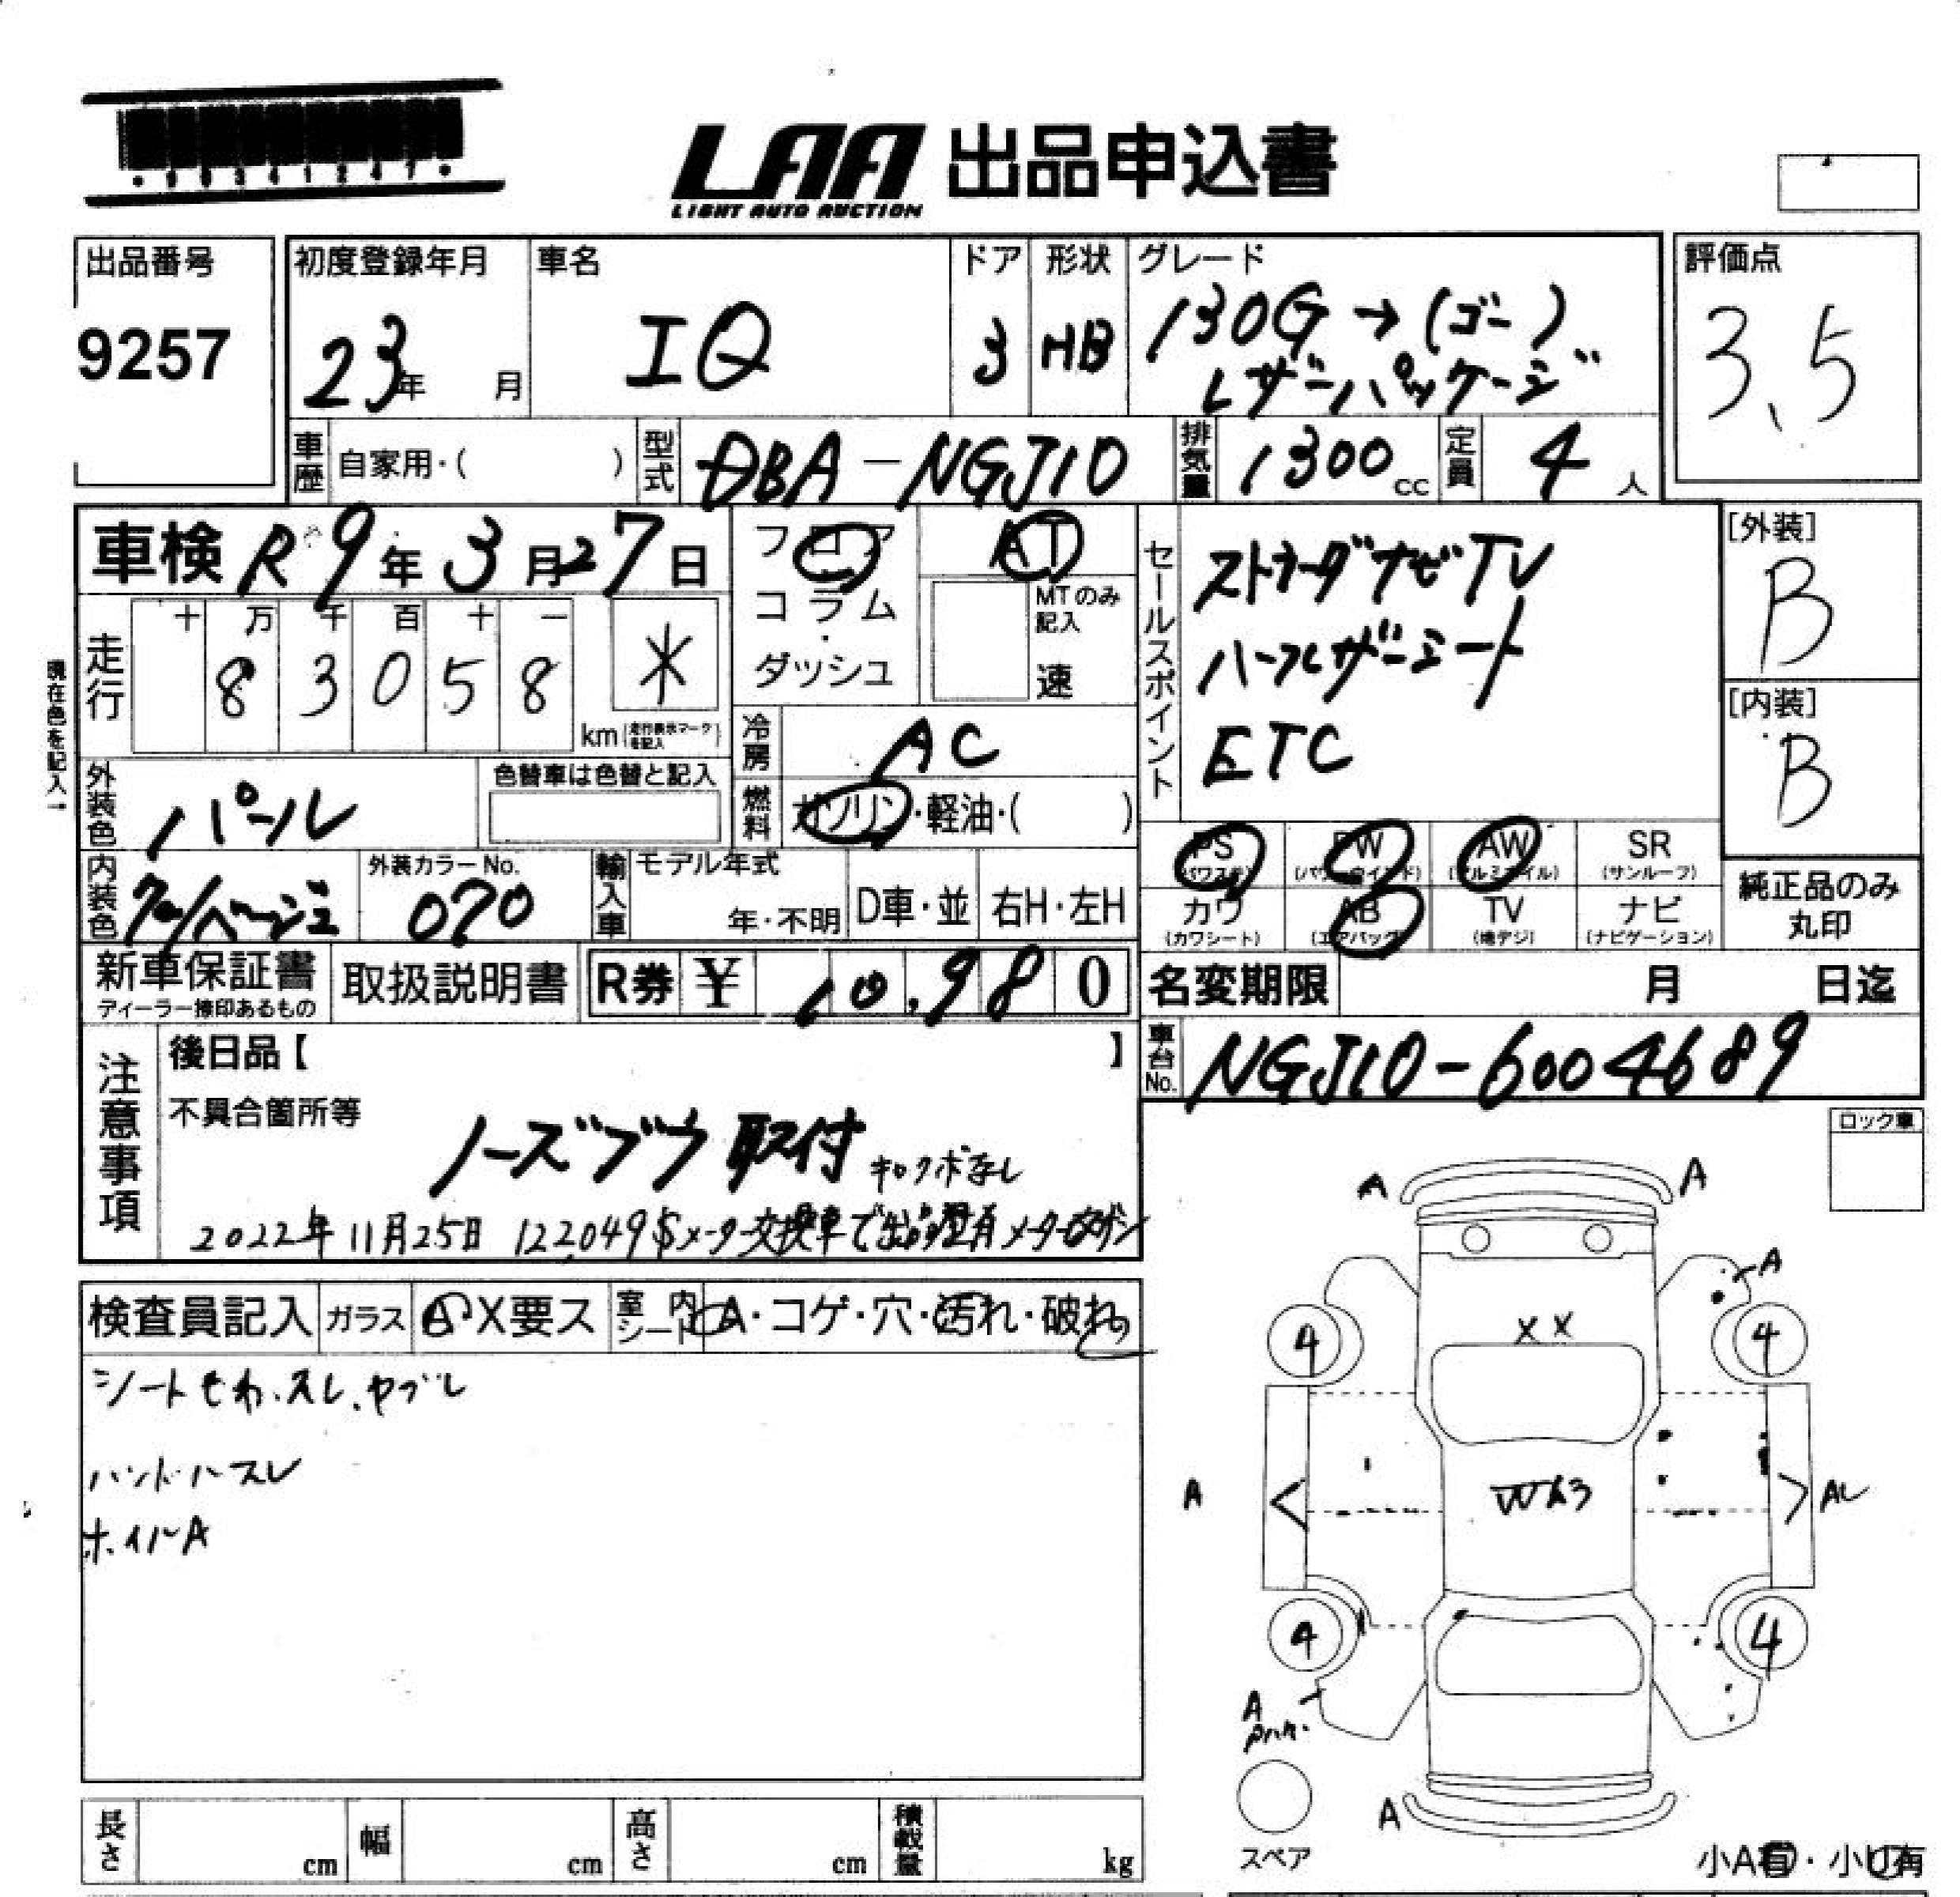 LAA 出品申込書
LIGHT AUTO AUCTION
出品番号
9257
初度登録年月
23年 月
車名
IQ
ドア
3
形状
HB
グレード
130G→(ゴー)
レザーパッケージ
評価点
3.5
車歴 自家用・( )
型式 DBA-NGJ10
排気量 1300cc
定員 4人
車検 R9年3月27日
現在色を記入→
走行 十 万 千 百 十 一
8 3 0 5 8 *
km(走行表示マークを記入)
フロア
コラム
・
ダッシュ
AT
MTのみ
記入
速
冷房 AC
燃料 ガソリン・軽油・( )
外装色 パール
色替車は色替と記入
内装色
外装カラーNo.
070
輸入車 モデル年式
年・不明 D車・並 右H・左H
セールスポイント
ストラーダナビTV
ハーフレザーシート
ETC
[外装]
B
[内装]
B
PS
(パワステ)
PW
(パワーウインド)
AW
(アルミホイル)
SR
(サンルーフ)
カワ
(カワシート)
AB
(エアバック)
TV
(地デジ)
ナビ
(ナビゲーション)
純正品のみ
丸印
新車保証書
ディーラー捺印あるもの
取扱説明書
R券 ¥ 10,980
名変期限 月 日迄
車台No. NGJ10-6004689
注意事項
後日品【 】
不具合箇所等
ノーズブラ取付 キロクボなし
2022年11月25日 122,049Sメーター交換車で出品歴有
ロック車
検査員記入 ガラス A・X要ス 室内シート A・コゲ・穴・汚れ・破れ
シートモわ.スレ.ヤブレ
ハンドルスレ
ホイルA
A
A
A
4
XX
4
A
W3
4
4
A
A
スペア
小A有・小U有
長さ cm 幅 cm 高さ cm 積載量 kg